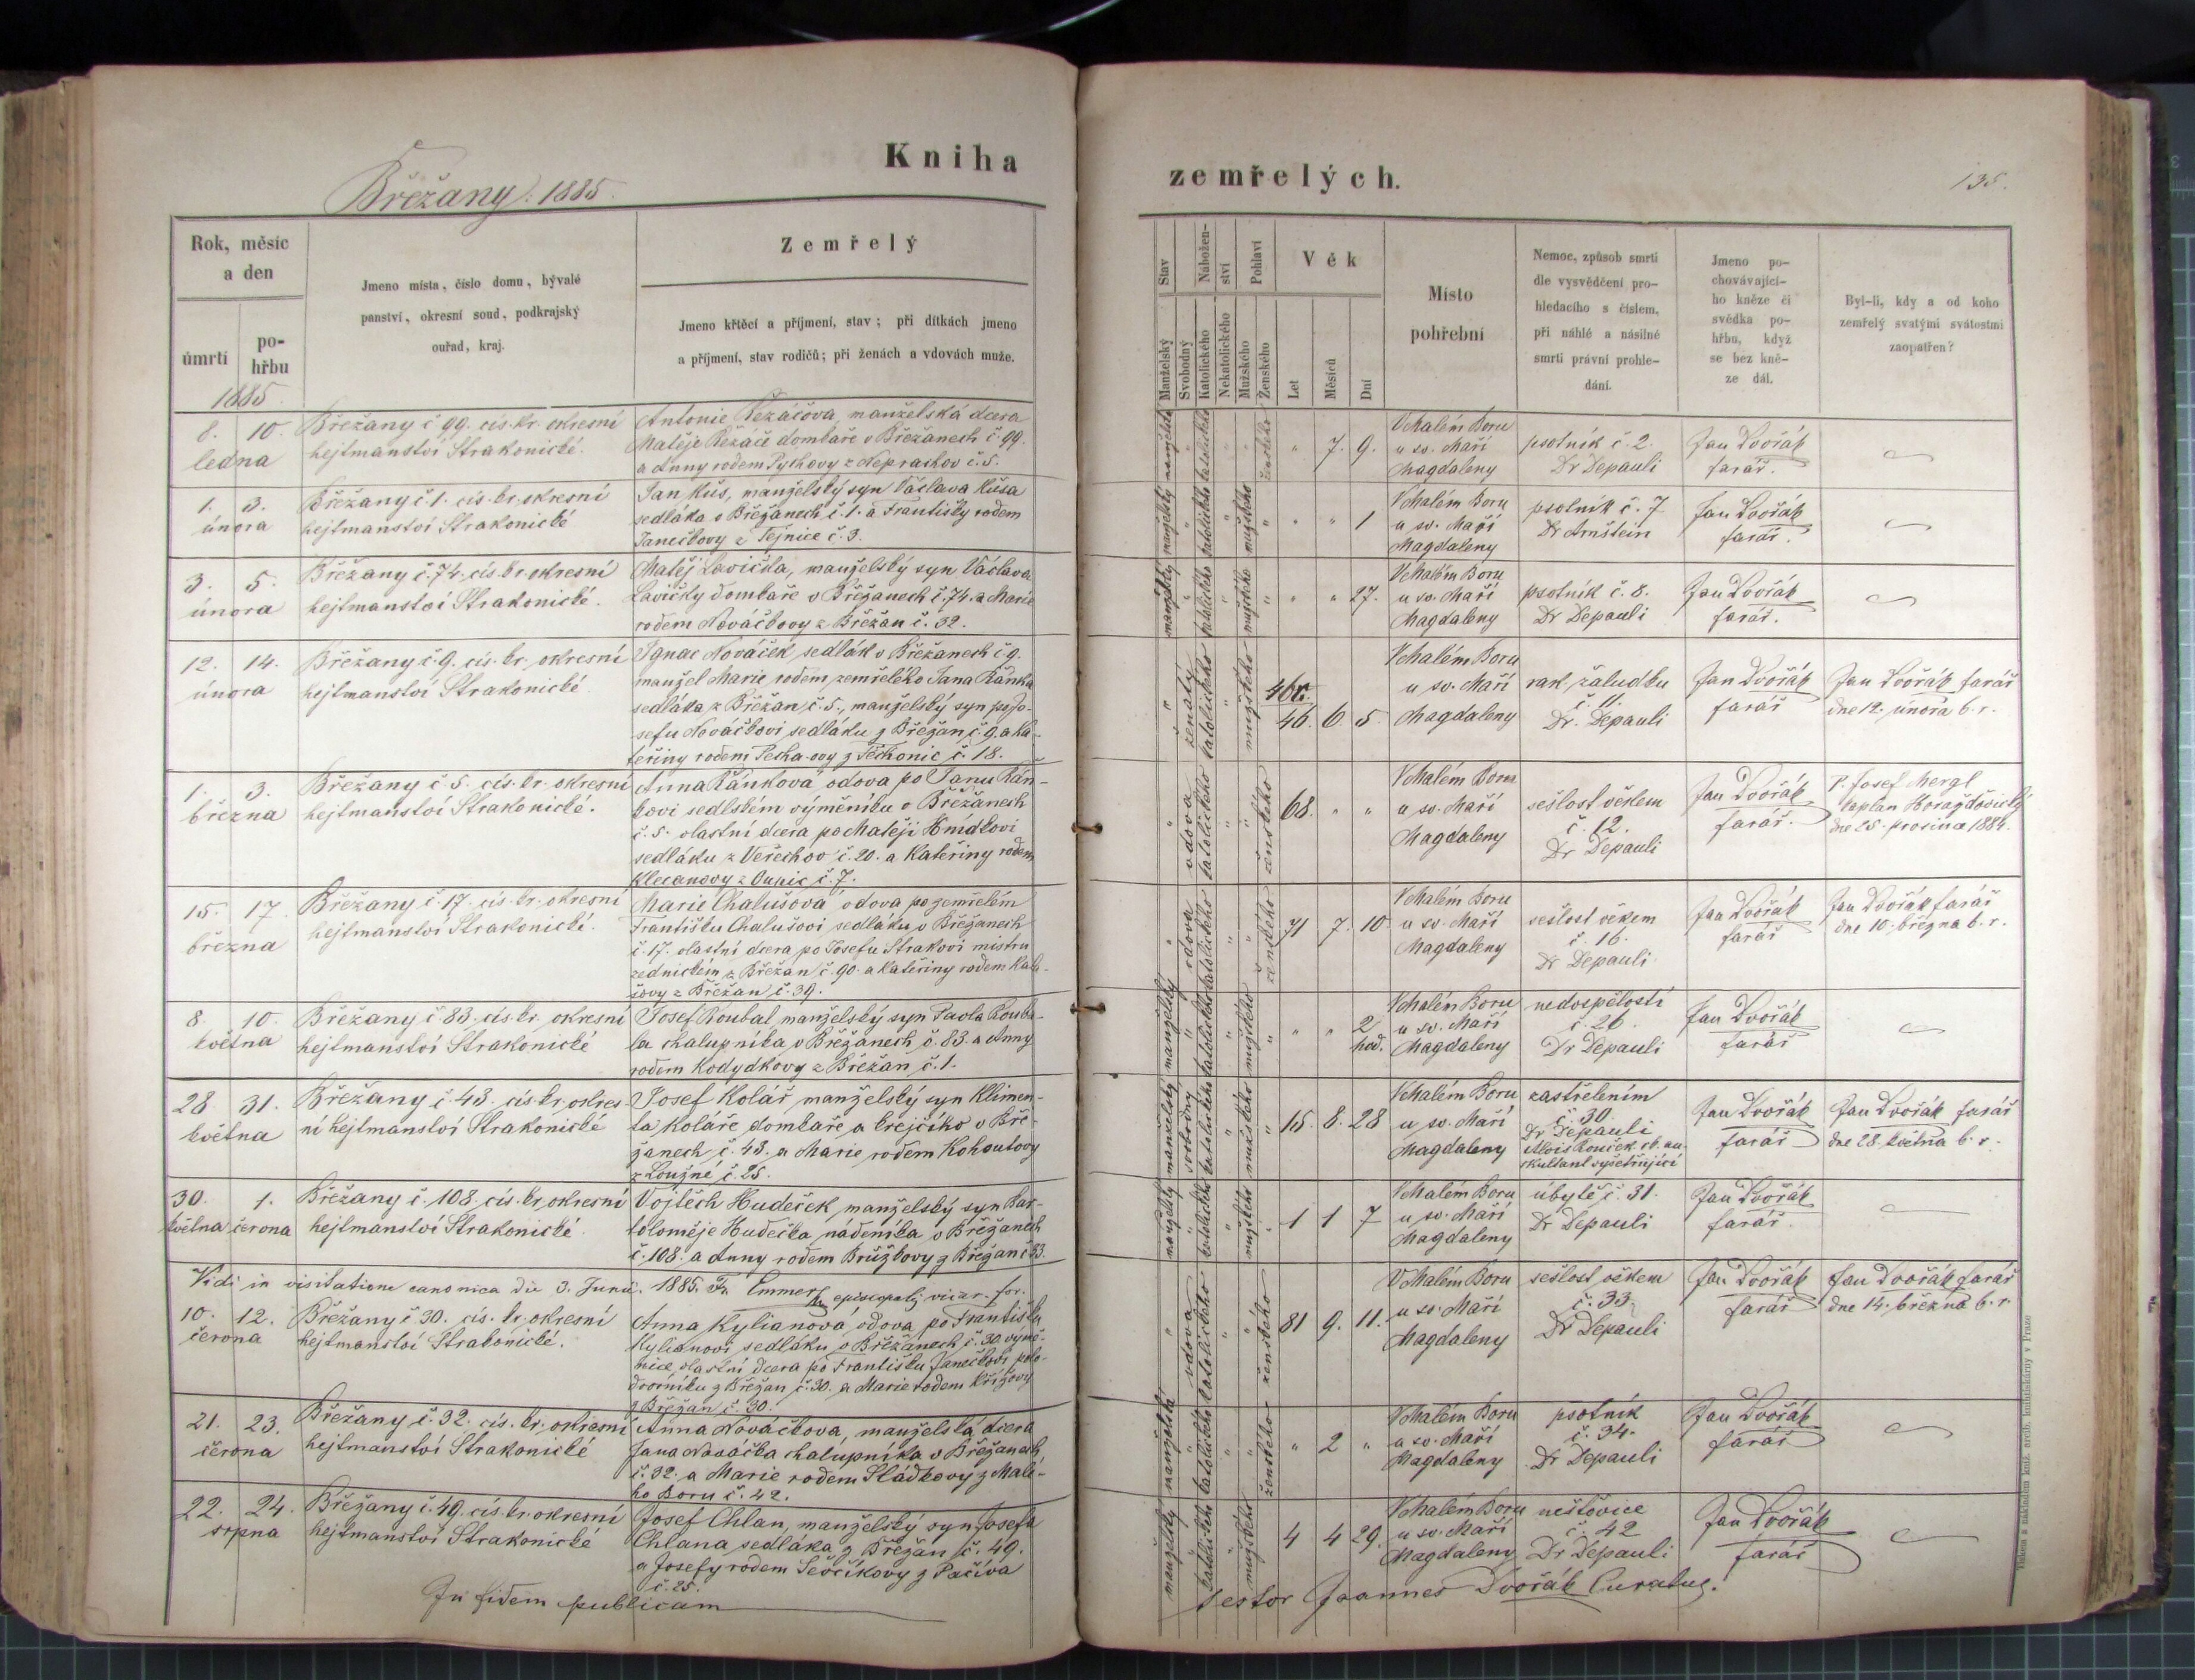 Kniha
Břežany. 1885.
Rok, měsíc
a den
úmrtí
po-
hřbu
Jmeno místa, číslo domu, bývalé
panství, okresní soud, podkrajský
ouřad, kraj.
Zemřelý
Jmeno křtěcí a příjmení, stav; při dítkách jmeno
a příjmení, stav rodičů; při ženách a vdovách muže.
1885.
8. 10.
ledna
Břežany č 99. cís. kr. okresní
hejtmanství Strakonické.
Antonie Řezáčova manželská dcera
Matěje Řezáče domkáře v Břežanech č. 99.
a Anny rodem Pychovy z Neprachov č. 5.
1. 3.
února
Břežany č 1. cís. kr. okresní
hejtmanství Strakonické
Jan Kůs, manželský syn Václava Kůsa
sedláka v Břežanech č. 1. a Františky rodem
Janečkovy z Tejnice č. 3.
3. 5.
února
Břežany č. 74. cís. kr. okresní
hejtmanství Strakonické.
Matěj Lavička, manželský syn Václava
Lavičky domkáře v Břežanech č. 74. a Marie
rodem Nováčkovy z Břežan č. 32.
12. 14.
února
Břežany č. 9. cís. kr. okresní
hejtmanství Strakonické
Ignac Nováček sedlák v Břežanech č 9.
manžel Marie rodem zemřelého Jana Řánka
sedláka z Břežan č. 5., manželský syn po Jo-
sefu Nováčkovi sedláku z Břežan č. 9. a Ka-
teřiny rodem Pecha-ovy z Těchonic č. 18.
1. 3.
března
Břežany č 5. cís. kr. okresní
hejtmanství Strakonické.
Anna Řánková vdova po Janu Řán-
kovi sedlském výměníku v Břežanech
č. 5. vlastní dcera po Matěji Hnídkovi
sedláku z Veřechov č. 20. a Kateřiny rodem
Klecanovy z č. 7.
15. 17.
března
Břežany č. 17. cís. kr. okresní
hejtmanství Strakonické.
Marie Chalušová vdova po zemřelém
Františku Chalušovi sedláku v Břežanech
č. 17. vlastní dcera po Josefu Strakovi mistru
zednickém z Břežan č. 90. a Kateřiny rodem
z Břežan č. 39.
8. 10.
května
Břežany č 83. cís. kr. okresní
hejtmanství Strakonické
Josef Roubal manželský syn Pavla Rouba-
la chalupníka v Břežanech č. 83. a Anny
rodem Kodydkovy z Břežan č. 1.
28. 31.
května
Břežany č. 43. cís. kr. okres-
ní hejtmanství Strakonické
Josef Kolář manželský syn Klimen-
ta Koláře domkáře a krejčího v Bře-
žanech č. 43. a Marie rodem Kohoutovy
z Loužné č. 25.
30. 1.
května června
Břežany č. 108. cís. kr. okresní
hejtmanství Strakonické
Vojtěch Hudeček manželský syn Bar-
toloměje Hudečka nádeníka v Břežanech
č. 108. a Anny rodem Brůžkovy z Břežan č 33.
Vidi in visitatione canonica die 3. Junii. 1885. Fr. Emmer episcopalis vicar. for.
10. 12.
června
Břežany č 30. cís. kr. okresní
hejtmanství Strakonické.
Anna Kylianová vdova po Františku
Kylianovi sedláku v Břežanech č. 30. výmě-
nice, vlastní dcera po Františku Janečkovi polo-
dvorníku z Břežan č. 30. a Marie rodem Křížovy
z Břežan č. 30.
21. 23.
června
Břežany č. 32. cís. kr. okresní
hejtmanství Strakonické
Anna Nováčkova, manželská dcera
Jana Nováčka chalupníka v Břežanech
č. 32. a Marie rodem Sládkovy z Malé-
ho Boru č. 42.
22. 24.
srpna
Břežany č. 49. cís. kr. okresní
hejtmanství Strakonické
Josef Chlan, manželský syn Josefa
Chlana sedláka z Břežan č. 49.
a Josefy rodem Ševčíkovy z Pačiva
č. 25.
In fidem publicam
zemřelých.
135.
Stav
Nábožen-
ství
Pohlaví
Manželský
Svobodný
Katolického
Nekatolického
Mužského
Ženského
Věk
Let
Měsíců
Dní
Místo
pohřební
Nemoc, způsob smrti
dle vysvědčení pro-
hledacího s číslem,
při náhlé a násilné
smrti právní prohle-
dání.
Jmeno po-
chovávající-
ho kněze či
svědka po-
hřbu, když
se bez kně-
ze dál.
Byl-li, kdy a od koho
zemřelý svatými svátostmi
zaopatřen?
manželská " katolického " " ženského " 7. 9.
V Malém Boru
u sv. Maří
Magdaleny
psotník č. 2.
Dr Depauli
Jan Dvořák
farář.
manželský " katolického " mužského " " " 1
V Malém Boru
u sv. Maří
Magdaleny
psotník č. 7
Dr Arnštein
Jan Dvořák
farář.
manželský " katolického " mužského " " " 27.
V Malém Boru
u sv. Maří
Magdaleny
psotník č. 8.
Dr Depauli
Jan Dvořák
farář.
" ženatý katolického " mužského
46 r.
46. 6. 5.
V Malém Boru
u sv. Maří
Magdaleny
rak žaludku
č. 11.
Dr. Depauli
Jan Dvořák
farář
Jan Dvořák farář
dne 12. února b. r.
" vdova katolického " " ženského 68. " "
V Malém Boru
u sv. Maří
Magdaleny
sešlost věkem
č. 12.
Dr Depauli
Jan Dvořák
farář.
P. Josef Mergl
kaplan Horažďovický
dne 25. prosince 1884.
" vdova katolického " " ženského 71 7. 10
V Malém Boru
u sv. Maří
Magdaleny
sešlost věkem
č. 16.
Dr Depauli
Jan Dvořák
farář
Jan Dvořák farář
dne 10. března b. r.
manželský " katolického " mužského " " " 2
hod.
V Malém Boru
u sv. Maří
Magdaleny
nedospělostí
č. 26.
Dr Depauli
Jan Dvořák
farář
manželský svobodný katolického " mužského " 15. 8. 28
V Malém Boru
u sv. Maří
Magdaleny
zastřelením
č. 30.
Dr Depauli
Alois Rouček rb. au-
skultant vyšetřující
Jan Dvořák
farář
Jan Dvořák farář
dne 28. května b. r.
manželský " katolického " mužského " 1 1 7
V Malém Boru
u sv. Maří
Magdaleny
úbytě č. 31.
Dr Depauli
Jan Dvořák
farář.
" vdova katolického " " ženského 81 9. 11.
V Malém Boru
u sv. Maří
Magdaleny
sešlost věkem
č. 33
Dr Depauli
Jan Dvořák
farář
Jan Dvořák farář
dne 14. března b. r.
manželská " katolického " " ženského " 2 "
V Malém Boru
u sv. Maří
Magdaleny
psotník
č. 34.
Dr Depauli
Jan Dvořák
farář
manželský " katolického " mužského 4 4 29.
V Malém Boru
u sv. Maří
Magdaleny
neštovice
č. 42
Dr Depauli
Jan Dvořák
farář
testor Joannes Dvořák Curatus.
Tiskem a nákladem kníž. arcib. knihtiskárny v Praze